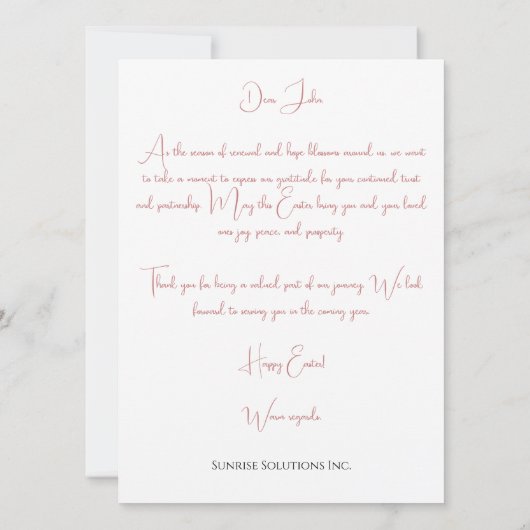 Dear John,
As the season of renewal and hope blossoms around us, we want
to take a moment to express our gratitude for your continued trust
and partnership. May this Easter bring you and your loved
ones joy, peace, and prosperity.
Thank you for being a valued part of our journey. We look
forward to serving you in the coming year.
Happy Easter!
Warm regards,
Sunrise Solutions Inc.